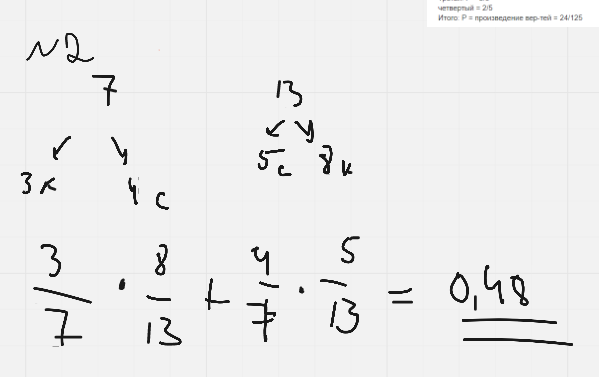 четвертый = 2/5
Итого: P = произведение вер-тей = 24/125
№2
7 13
3к 4с 5с 8к
3/7 · 8/13 + 4/7 · 5/13 = 0,48